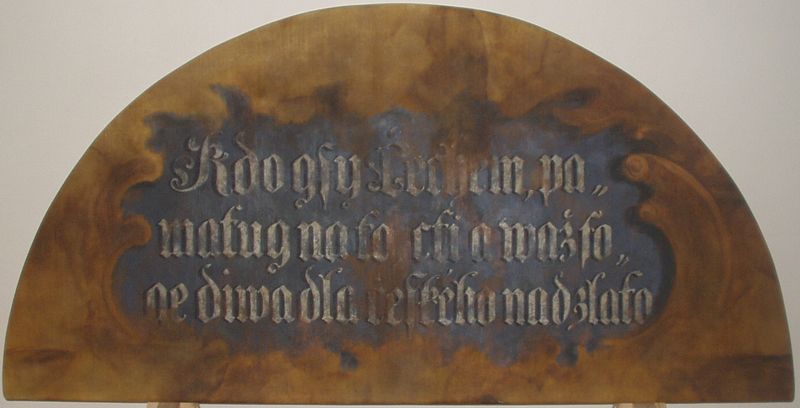 Kdo gsy Čechem, pa„
matug na to cti a waž so„
ge diwadla českého nad zlato